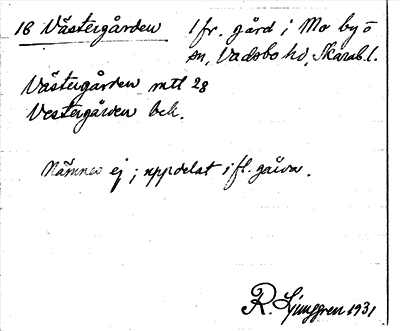 18 Västergården 1 fr. gård i Mo by o
sn, Vadsbo hd, Skarab. l.
Västergården mtl 28
Vestergården bek.
Nämnes ej; uppdelat i fl. gårdar.
R. Ljunggren 1931